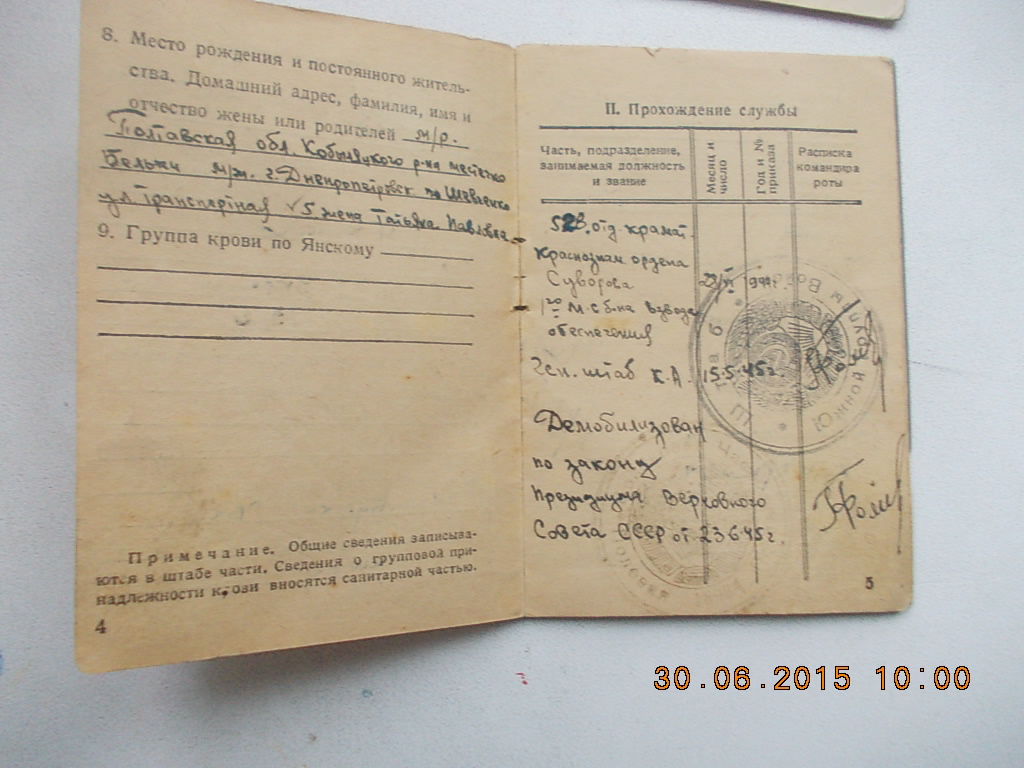 8. Место рождения и постоянного житель-
ства. Домашний адрес, фамилия, имя и
отчество жены или родителей м/р.
Полтавская обл. Кобыляцкого р-на местечко
м/ж. г. Днепропетровск
ул Транспортная 5 жена Татьяна Павловна
9. Группа крови по Янскому
Примечание. Общие сведения записыва-
ются в штабе части. Сведения о групповой при-
надлежности крови вносятся санитарной частью.
4
II. Прохождение службы
Часть, подразделение,
занимаемая должность
и звание
Месяц и
число
Год и №
приказа
Расписка
командира
роты
528 отд. крамат.
Краснознам ордена
Суворова
1го М.С б-на взвода
обеспечения
Ген. штаб К.А. 15.5.45г.
Демобилизован
по закону
Президиума Верховного
Совета СССР от 23 6 45г.
Южной
5
30.06.2015 10:00